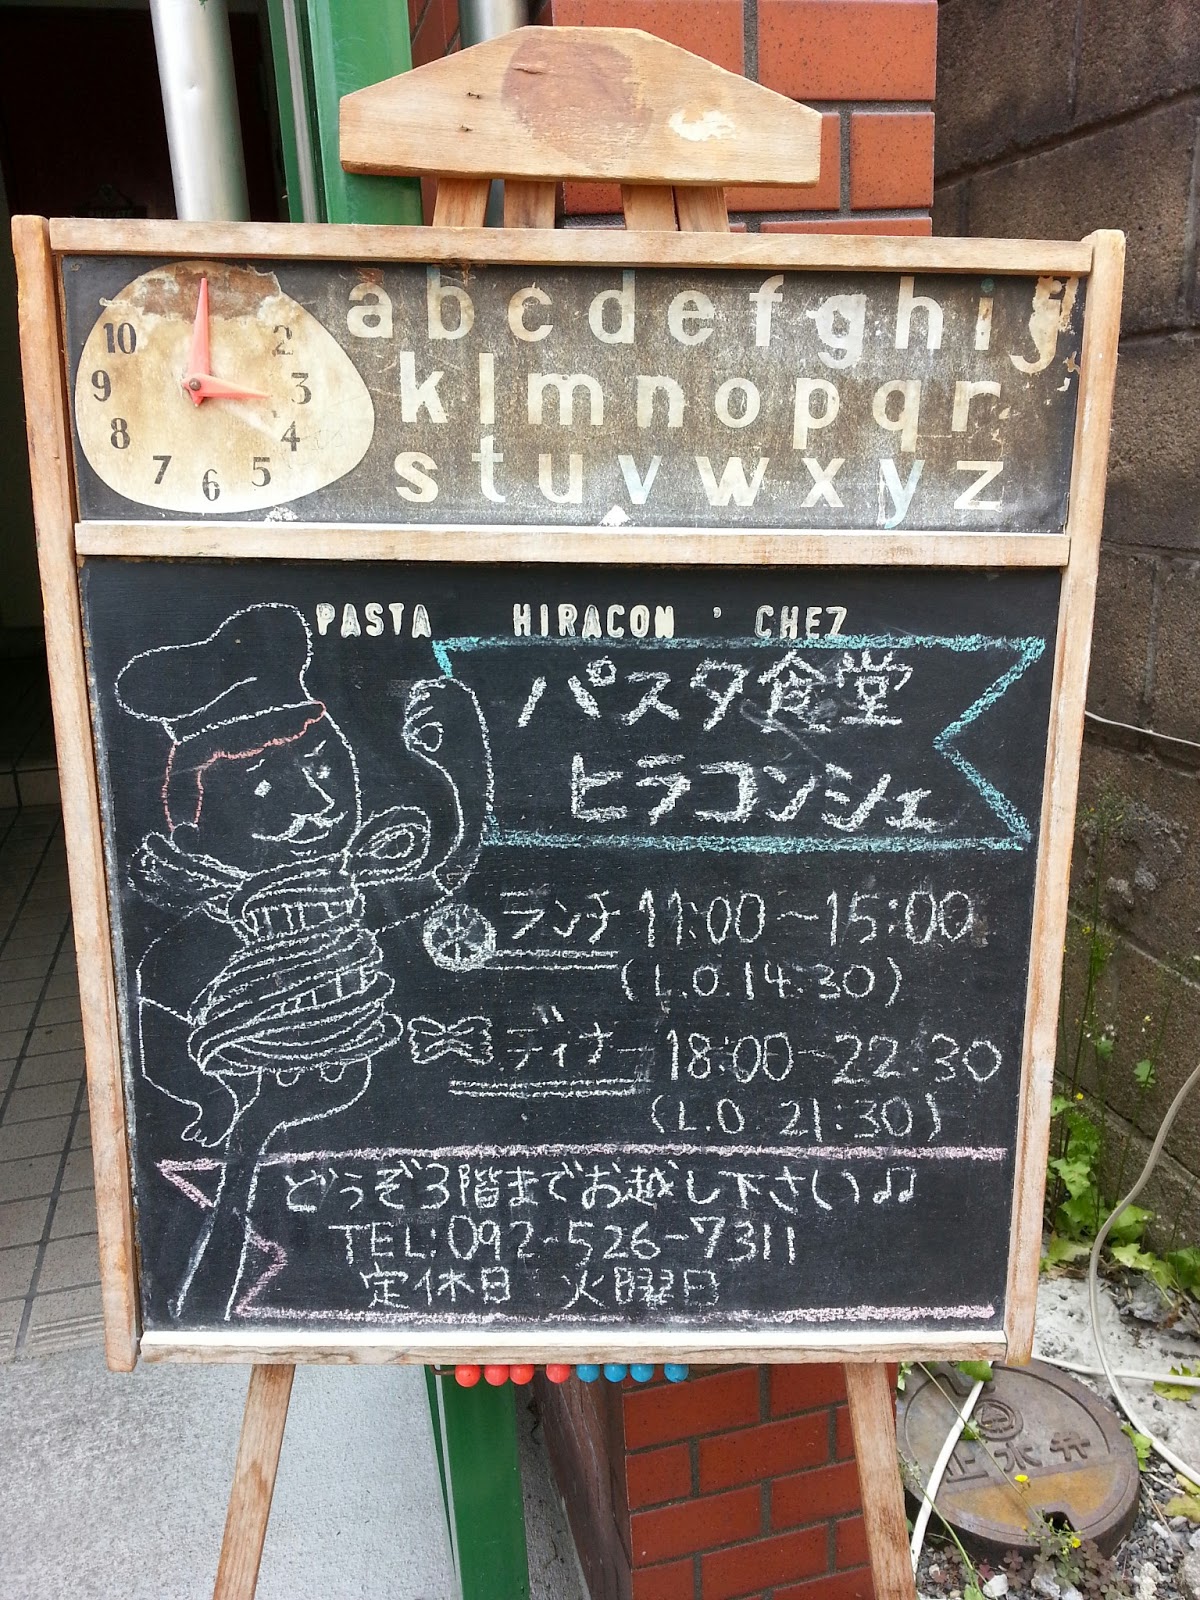 a b c d e f g h i j
10 2
k l m n o p q r
9 3
8 4
s t u v w x y z
7 6 5
PASTA HIRACON ' CHEZ
パスタ食堂
ヒラコンシェ
ランチ 11:00～15:00
(L.O 14:30)
ディナー 18:00～22:30
(L.O. 21:30)
どうぞ3階までお越し下さい♫
TEL:092-526-7311
定休日 火曜日
止水弁